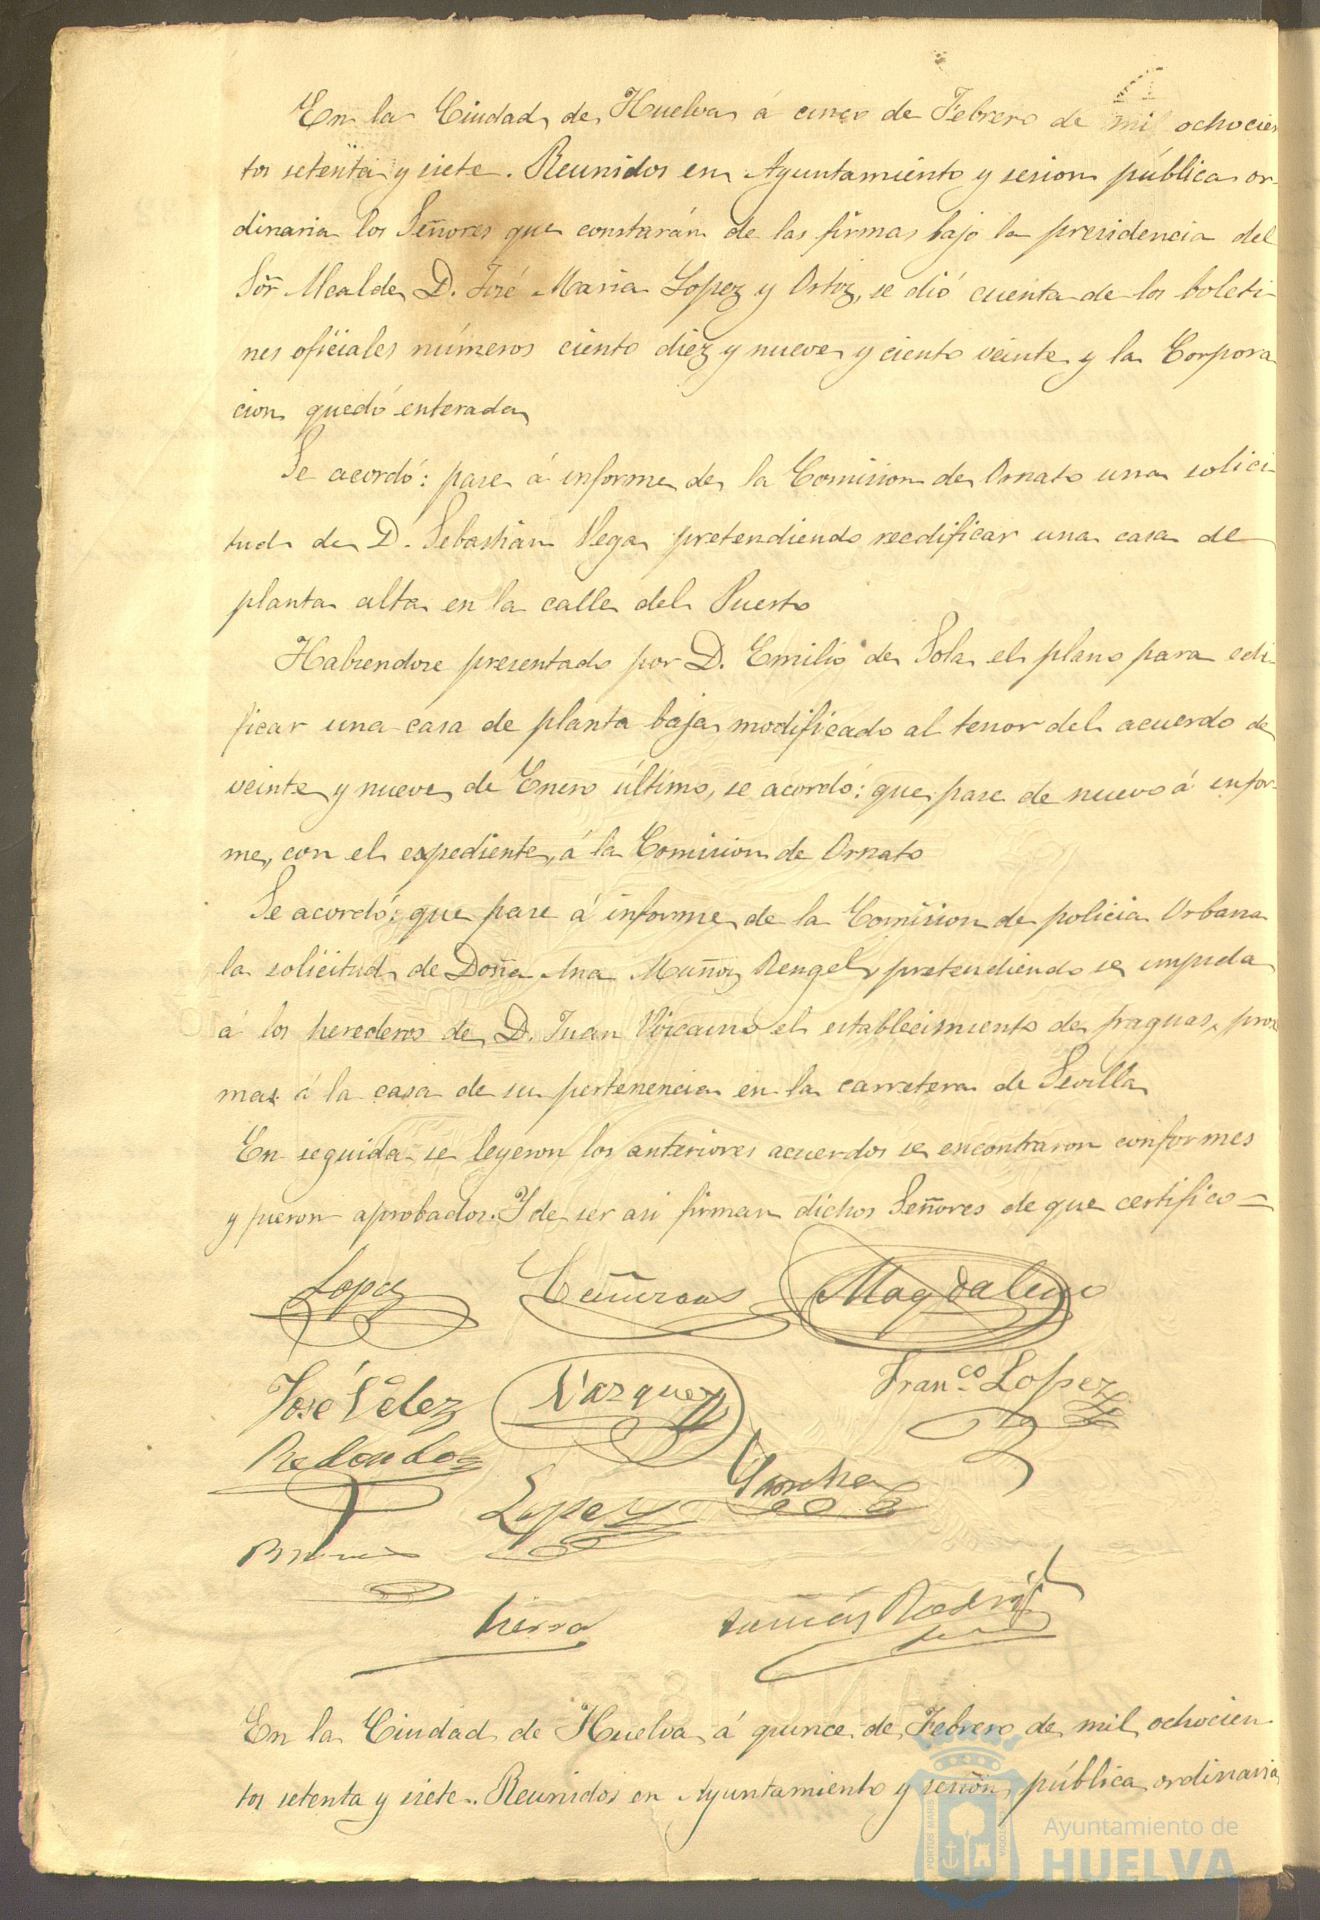 En la Ciudad de Huelva á cinco de Febrero de mil ochocien
tos setenta y siete. Reunidos en Ayuntamiento y sesion pública or-
dinaria los Señores que constarán de las firmas bajo la presidencia del
Sór Alcalde D. José Maria Lopez y Ortiz, se dió cuenta de los boleti-
nes oficiales números ciento diez y nueve y ciento veinte y la Corpora
cion quedó enterada
Se acordó: pase á informe de la Comision de Ornato una solici-
tud de D. Sebastián Vega pretendiendo reedificar una casa de
planta alta en la calle del Puerto
Habiendose presentado por D. Emilio de Sola el plano para edi-
ficar una casa de planta baja modificado al tenor del acuerdo de
veinte y nueve de Enero último, se acordó: que pase de nuevo á infor-
me, con el expediente, á la Comision de Ornato
Se acordó: que pase á informe de la Comision de policia Urbana
la solicitud de Doña Ana Muñoz Rengel pretendiendo se impida
á los herederos de D. Juan Vizcaino el establecimiento de fraguas proxi
mas á la casa de su pertenencia en la carretera de Sevilla
En seguida se leyeron los anteriores acuerdos se encontraron conformes
y fueron aprobados. Y de ser asi firman dichos Señores de que certifico=
Lopez Magdaleno
José Velez Vazquez Fran.co Lopez
Redondo
Lopez
Hierro Tomás Rodrig
En la Ciudad de Huelva á quince de Febrero de mil ochocien
tos setenta y siete. Reunidos en Ayuntamiento y sesión pública ordinaria
PORTUS MARIS CUSTODIA
Ayuntamiento de
HUELVA